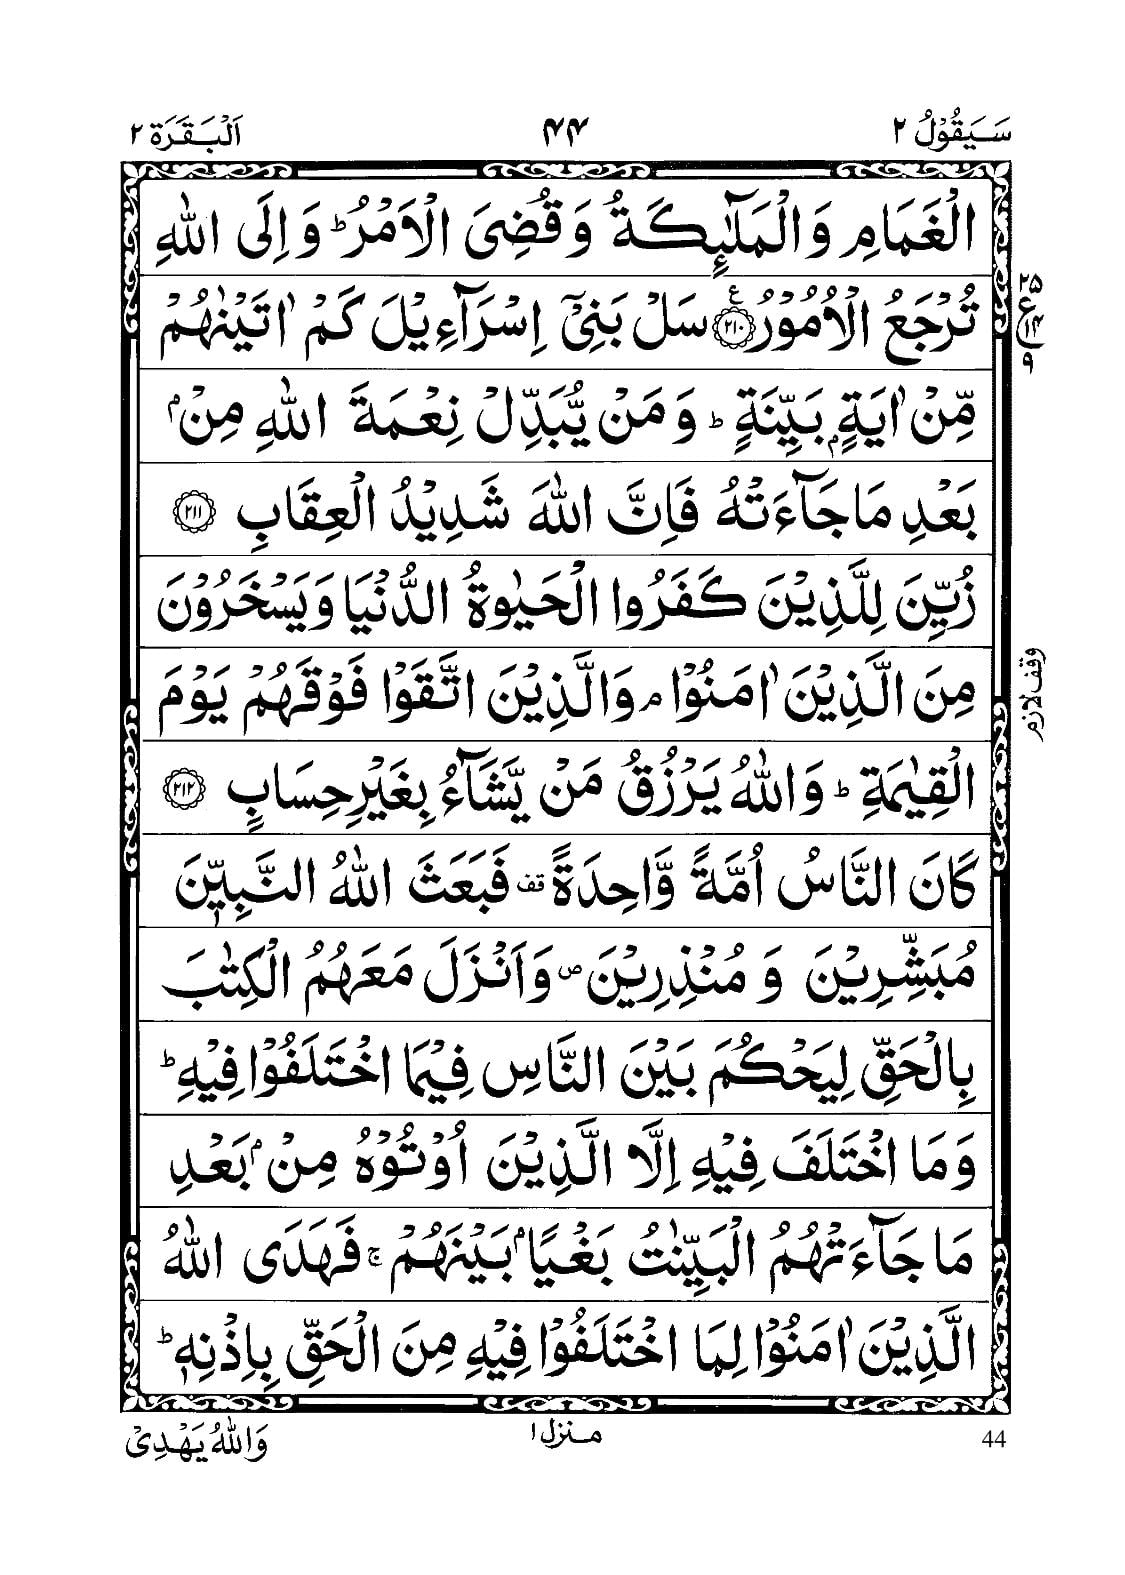 سَيَقُوْلُ ٢ ٤٤ اَلْبَقَرَة ٢
الْغَمَامِ وَالْمَلٰٓئِكَةُ وَقُضِیَ الْاَمْرُ ؕ وَاِلَی اللّٰهِ
تُرْجَعُ الْاُمُوْرُ ع ﴿٢١٠﴾ سَلْ بَنِیْۤ اِسْرَآءِيْلَ كَمْ اٰتَيْنٰهُمْ
٢٥
ع
١٤
٩
مِّنْ اٰيَةٍۭ بَيِّنَةٍ ؕ وَمَنْ يُّبَدِّلْ نِعْمَةَ اللّٰهِ مِنْۢ
بَعْدِ مَا جَآءَتْهُ فَاِنَّ اللّٰهَ شَدِيْدُ الْعِقَابِ ﴿٢١١﴾
زُيِّنَ لِلَّذِيْنَ كَفَرُوا الْحَيٰوةُ الدُّنْيَا وَيَسْخَرُوْنَ
مِنَ الَّذِيْنَ اٰمَنُوْا ۘ وَالَّذِيْنَ اتَّقَوْا فَوْقَهُمْ يَوْمَ
وقف لازم
الْقِيٰمَةِ ؕ وَاللّٰهُ يَرْزُقُ مَنْ يَّشَآءُ بِغَيْرِ حِسَابٍ ﴿٢١٢﴾
كَانَ النَّاسُ اُمَّةً وَّاحِدَةً قف فَبَعَثَ اللّٰهُ النَّبِيّٖنَ
مُبَشِّرِيْنَ وَ مُنْذِرِيْنَ ص وَاَنْزَلَ مَعَهُمُ الْكِتٰبَ
بِالْحَقِّ لِيَحْكُمَ بَيْنَ النَّاسِ فِيْمَا اخْتَلَفُوْا فِيْهِ ؕ
وَمَا اخْتَلَفَ فِيْهِ اِلَّا الَّذِيْنَ اُوْتُوْهُ مِنْۢ بَعْدِ
مَا جَآءَتْهُمُ الْبَيِّنٰتُ بَغْيًاۢ بَيْنَهُمْ ۚ فَهَدَی اللّٰهُ
الَّذِيْنَ اٰمَنُوْا لِمَا اخْتَلَفُوْا فِيْهِ مِنَ الْحَقِّ بِاِذْنِهٖ ؕ
44 منزل ١ وَاللّٰهُ يَهْدِیْ